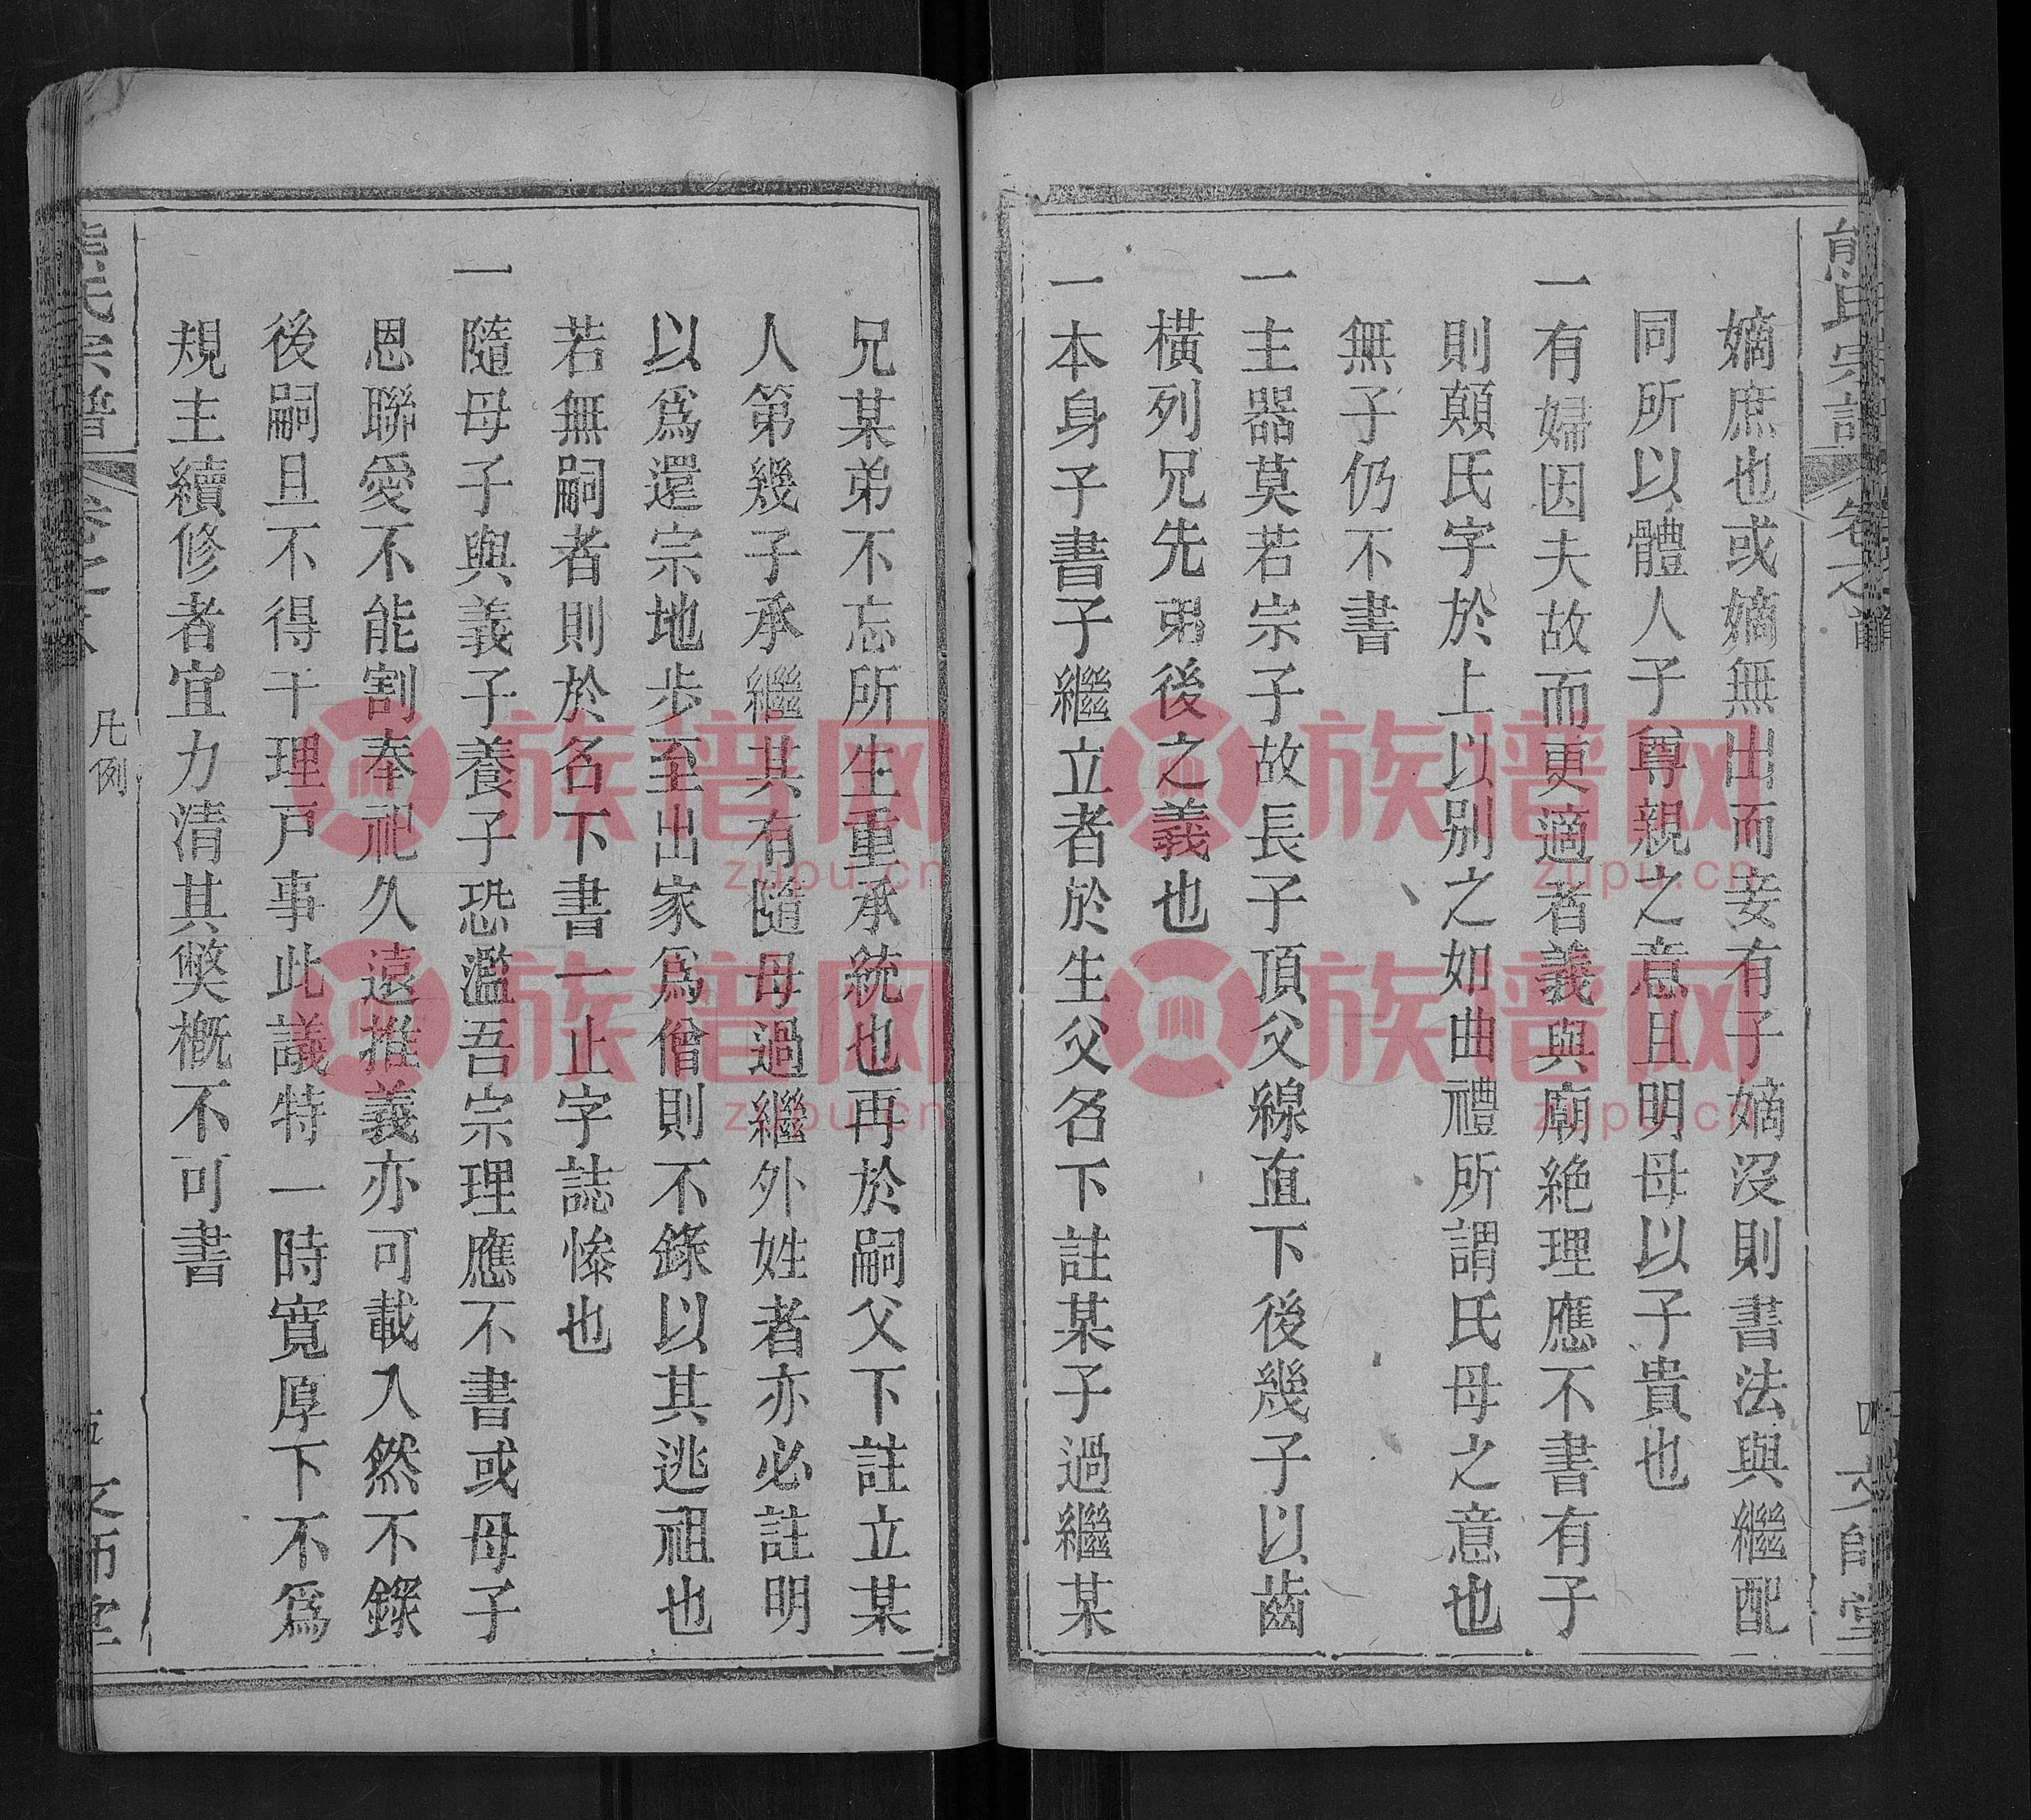 熊氏宗譜
卷之首
四
文師堂
嫡庶也或嫡無出而妾有子嫡沒則書法與繼配
同所以體人子尊親之意且明母以子貴也
一有婦因夫故而更適者義與廟絶理應不書有子
則顛氏字於上以別之如曲禮所謂氏母之意也
無子仍不書
一主器莫若宗子故長子頂父線直下後幾子以齒
橫列兄先弟後之義也
一本身子書子繼立者於生父名下註某子過繼某
兄某弟不忘所生重承統也再於嗣父下註立某
人第幾子承繼其有隨母過繼外姓者亦必註明
以爲還宗地步至出家爲僧則不錄以其逃祖也
若無嗣者則於名下書一止字誌慘也
一隨母子與義子養子恐濫吾宗理應不書或母子
恩聯愛不能割奉祀久遠推義亦可載入然不錄
後嗣且不得干理戸事此議特一時寬厚下不爲
規主續修者宜力清其獘概不可書
熊氏宗譜
卷之首
凡例
五
文師堂
族谱网
zupu.cn
族谱网
zupu.cn
族谱网
zupu.cn
族谱网
zupu.cn